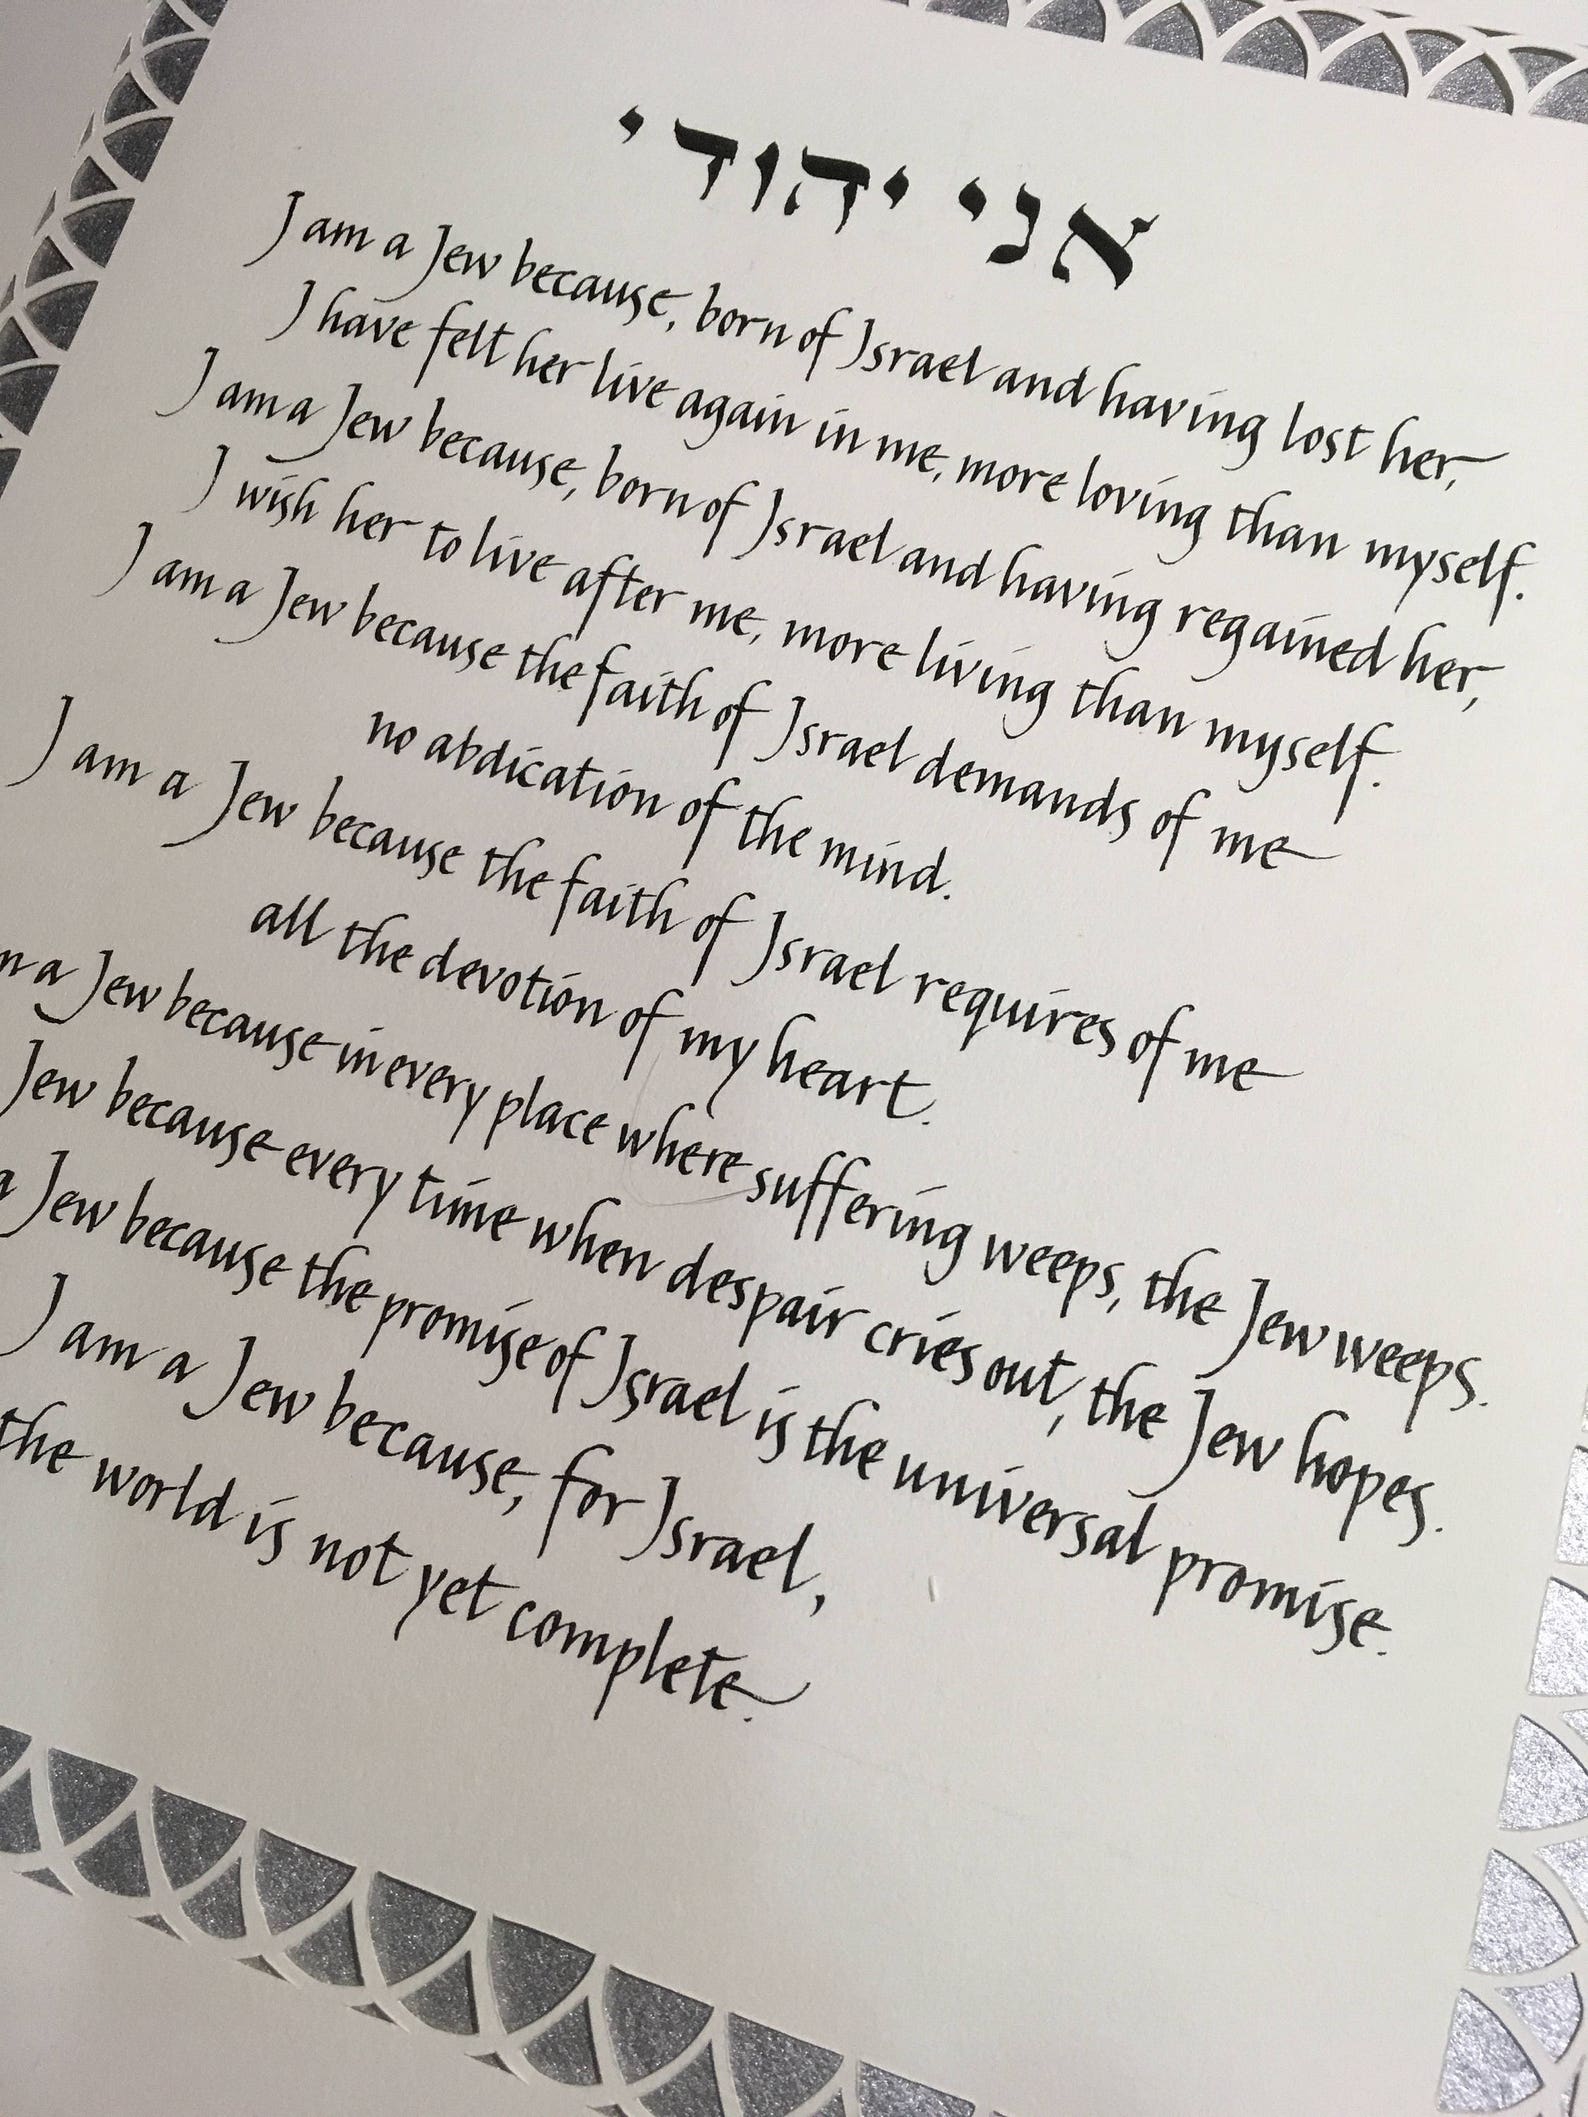 אני יהודי
I am a Jew because, born of Israel and having lost her,
I have felt her live again in me, more loving than myself.
I am a Jew because, born of Israel and having regained her,
I wish her to live after me, more living than myself.
I am a Jew because the faith of Israel demands of me
no abdication of the mind.
I am a Jew because the faith of Israel requires of me
all the devotion of my heart.
a Jew because in every place where suffering weeps, the Jew weeps.
Jew because every time when despair cries out, the Jew hopes.
a Jew because the promise of Israel is the universal promise.
I am a Jew because, for Israel,
the world is not yet complete.